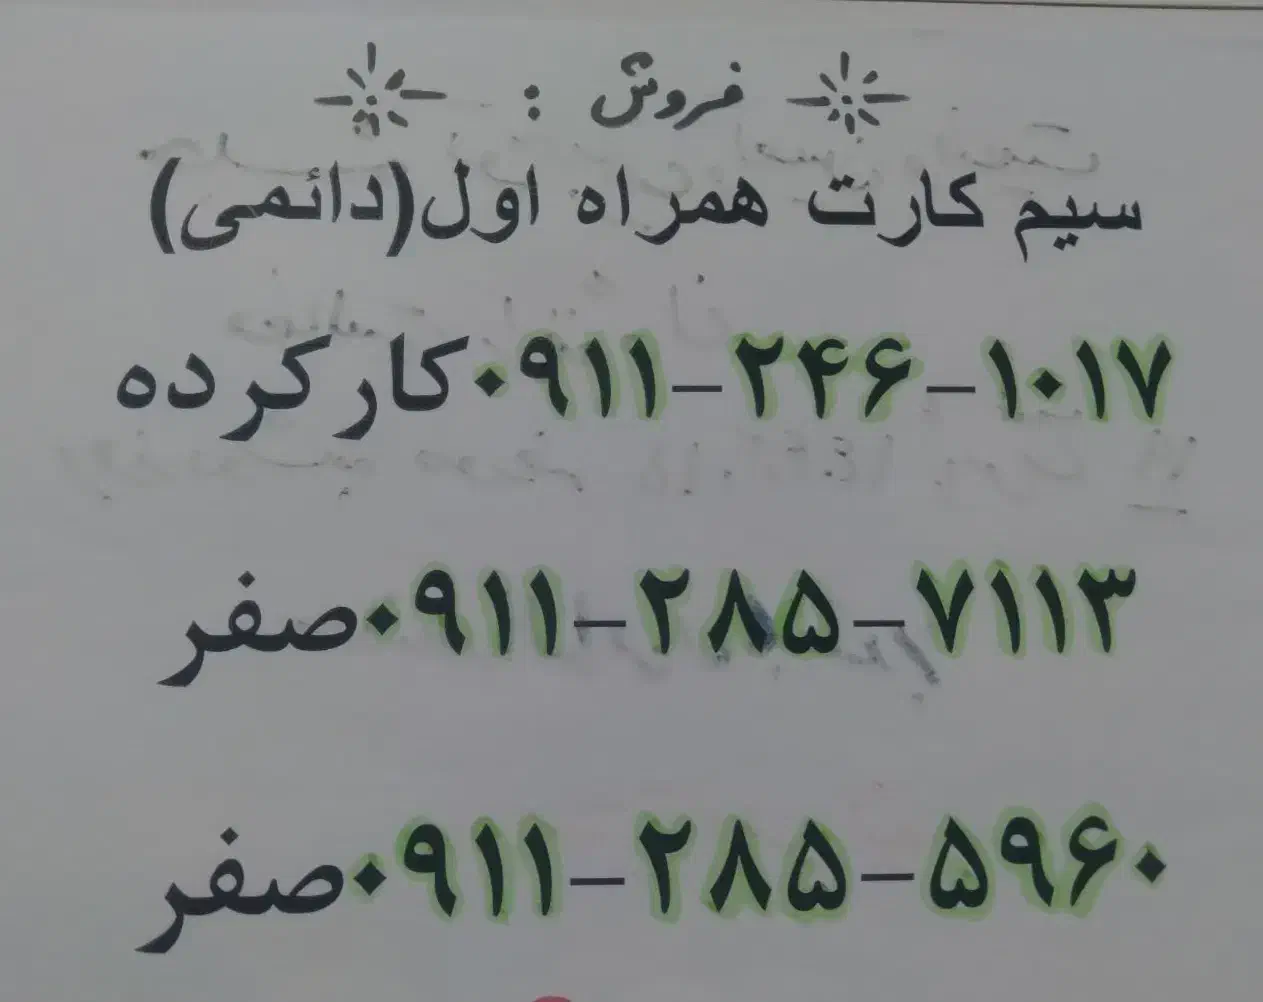 فروش :
سیم کارت همراه اول(دائمی)
۰۹۱۱-۲۴۶-۱۰۱۷کارکرده
۰۹۱۱-۲۸۵-۷۱۱۳صفر
۰۹۱۱-۲۸۵-۵۹۶۰صفر